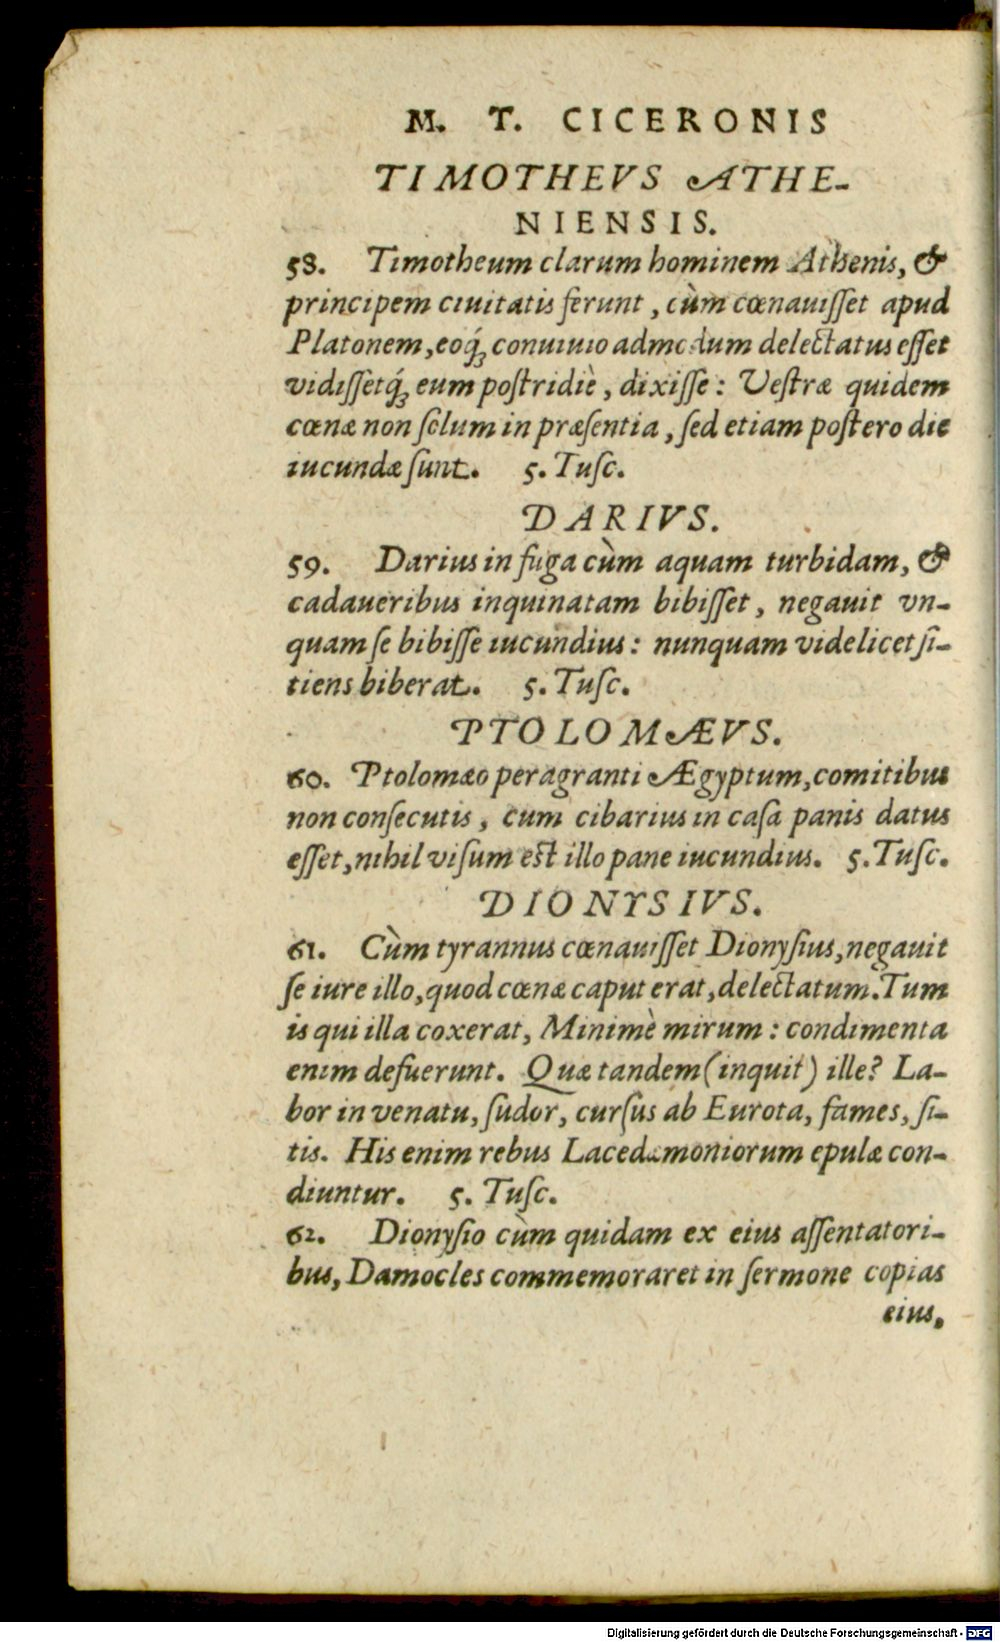 M. T. CICERONIS
TIMOTHEVS ATHE-
NIENSIS.
58. Timotheum clarum hominem Athenis, &
principem ciuitatis ferunt, cùm cœnauiſſet apud
Platonem, eoq́ꝫ conuiuio admodum delectatus eſſet
vidiſſetq́ꝫ eum poſtridiè, dixiſſe: Veſtræ quidem
cœnæ non ſolum in præſentia, ſed etiam poſtero die
iucundæ ſunt. 5. Tuſc.
DARIVS.
59. Darius in fuga cùm aquam turbidam, &
cadaueribus inquinatam bibiſſet, negauit vn-
quam ſe bibiſſe iucundius: nunquam videlicet ſi-
tiens biberat. 5. Tuſc.
PTOLOMÆVS.
60. Ptolomæo peragranti Ægyptum, comitibus
non conſecutis, cum cibarius in caſa panis datus
eſſet, nihil viſum eſt illo pane iucundius. 5. Tuſc.
DIONYSIVS.
61. Cùm tyrannus cœnauiſſet Dionyſius, negauit
ſe iure illo, quod cœnæ caput erat, delectatum. Tum
is qui illa coxerat, Minimè mirum: condimenta
enim defuerunt. Quæ tandem (inquit) ille? La-
bor in venatu, ſudor, curſus ab Eurota, fames, ſi-
tis. His enim rebus Lacedæmoniorum epulæ con-
diuntur. 5. Tuſc.
62. Dionyſio cùm quidam ex eius aſſentatori-
bus, Damocles commemoraret in ſermone copias
eius,
Digitalisierung gefördert durch die Deutsche Forschungsgemeinschaft - DFG